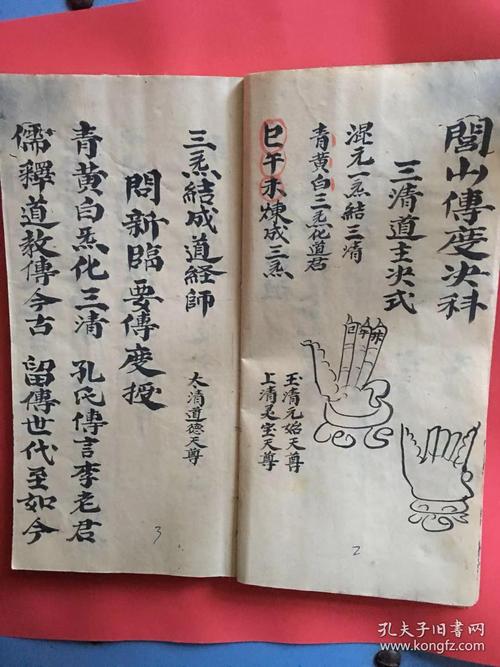 閭山傳度決科
三清道主決式
混元一炁結三清
青黃白三炁化道君
巳午未煉成三炁
巳
午
未
玉清元始天尊
上清灵宝天尊
2
三炁結成道経師
太清道德天尊
問新臨要傳度授
青黃白炁化三清 孔氏傳言李老君
儒釋道教傳今古 留傳世代至如今
3
孔夫子旧书网
www.kongfz.com